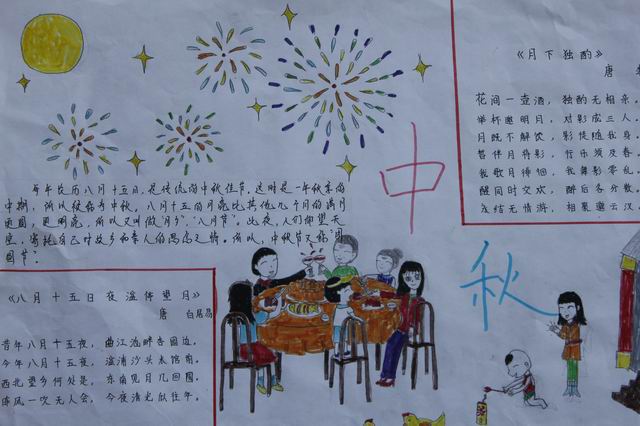 《月下独酌》
唐
花间一壶酒，独酌无相亲
举杯邀明月，对影成三人。
月既不解饮，影徒随我身
暂伴月将影，行乐须及春
我歌月徘徊，我舞影零乱
醒同时交欢，醉后各分散
永结无情游，相期邈云汉
中
秋
每年农历八月十五日，是传统的中秋佳节。这时是一年秋季的
中期，所以被称为中秋。八月十五的月亮比其他几个月的满月
更圆，更明亮，所以又叫做"月夕"，"八月节"。此夜，人们仰望天
空，寄托自己对故乡和亲人的思念之情。所以，中秋节又称"团
圆节"。
《八月十五日夜湓停望月》
唐 白居易
昔年八月十五夜，曲江池畔杏园边。
今年八月十五夜，湓浦沙头水馆前。
西北望乡何处是，东南见月几回圆。
昨风一吹无人会，今夜清光似往年。